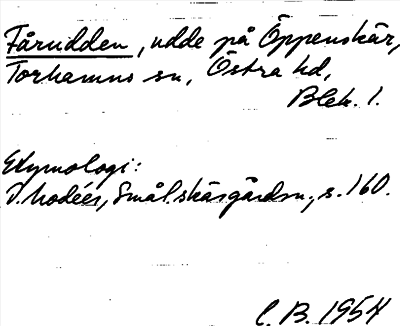 Fårudden, udde på Öppenskär,
Torhamns sn, Östra hd,
Blek. l.
Etymologi:
I. Modéer, Smål. skärgårdsn., s. 160.
C. B. 1954